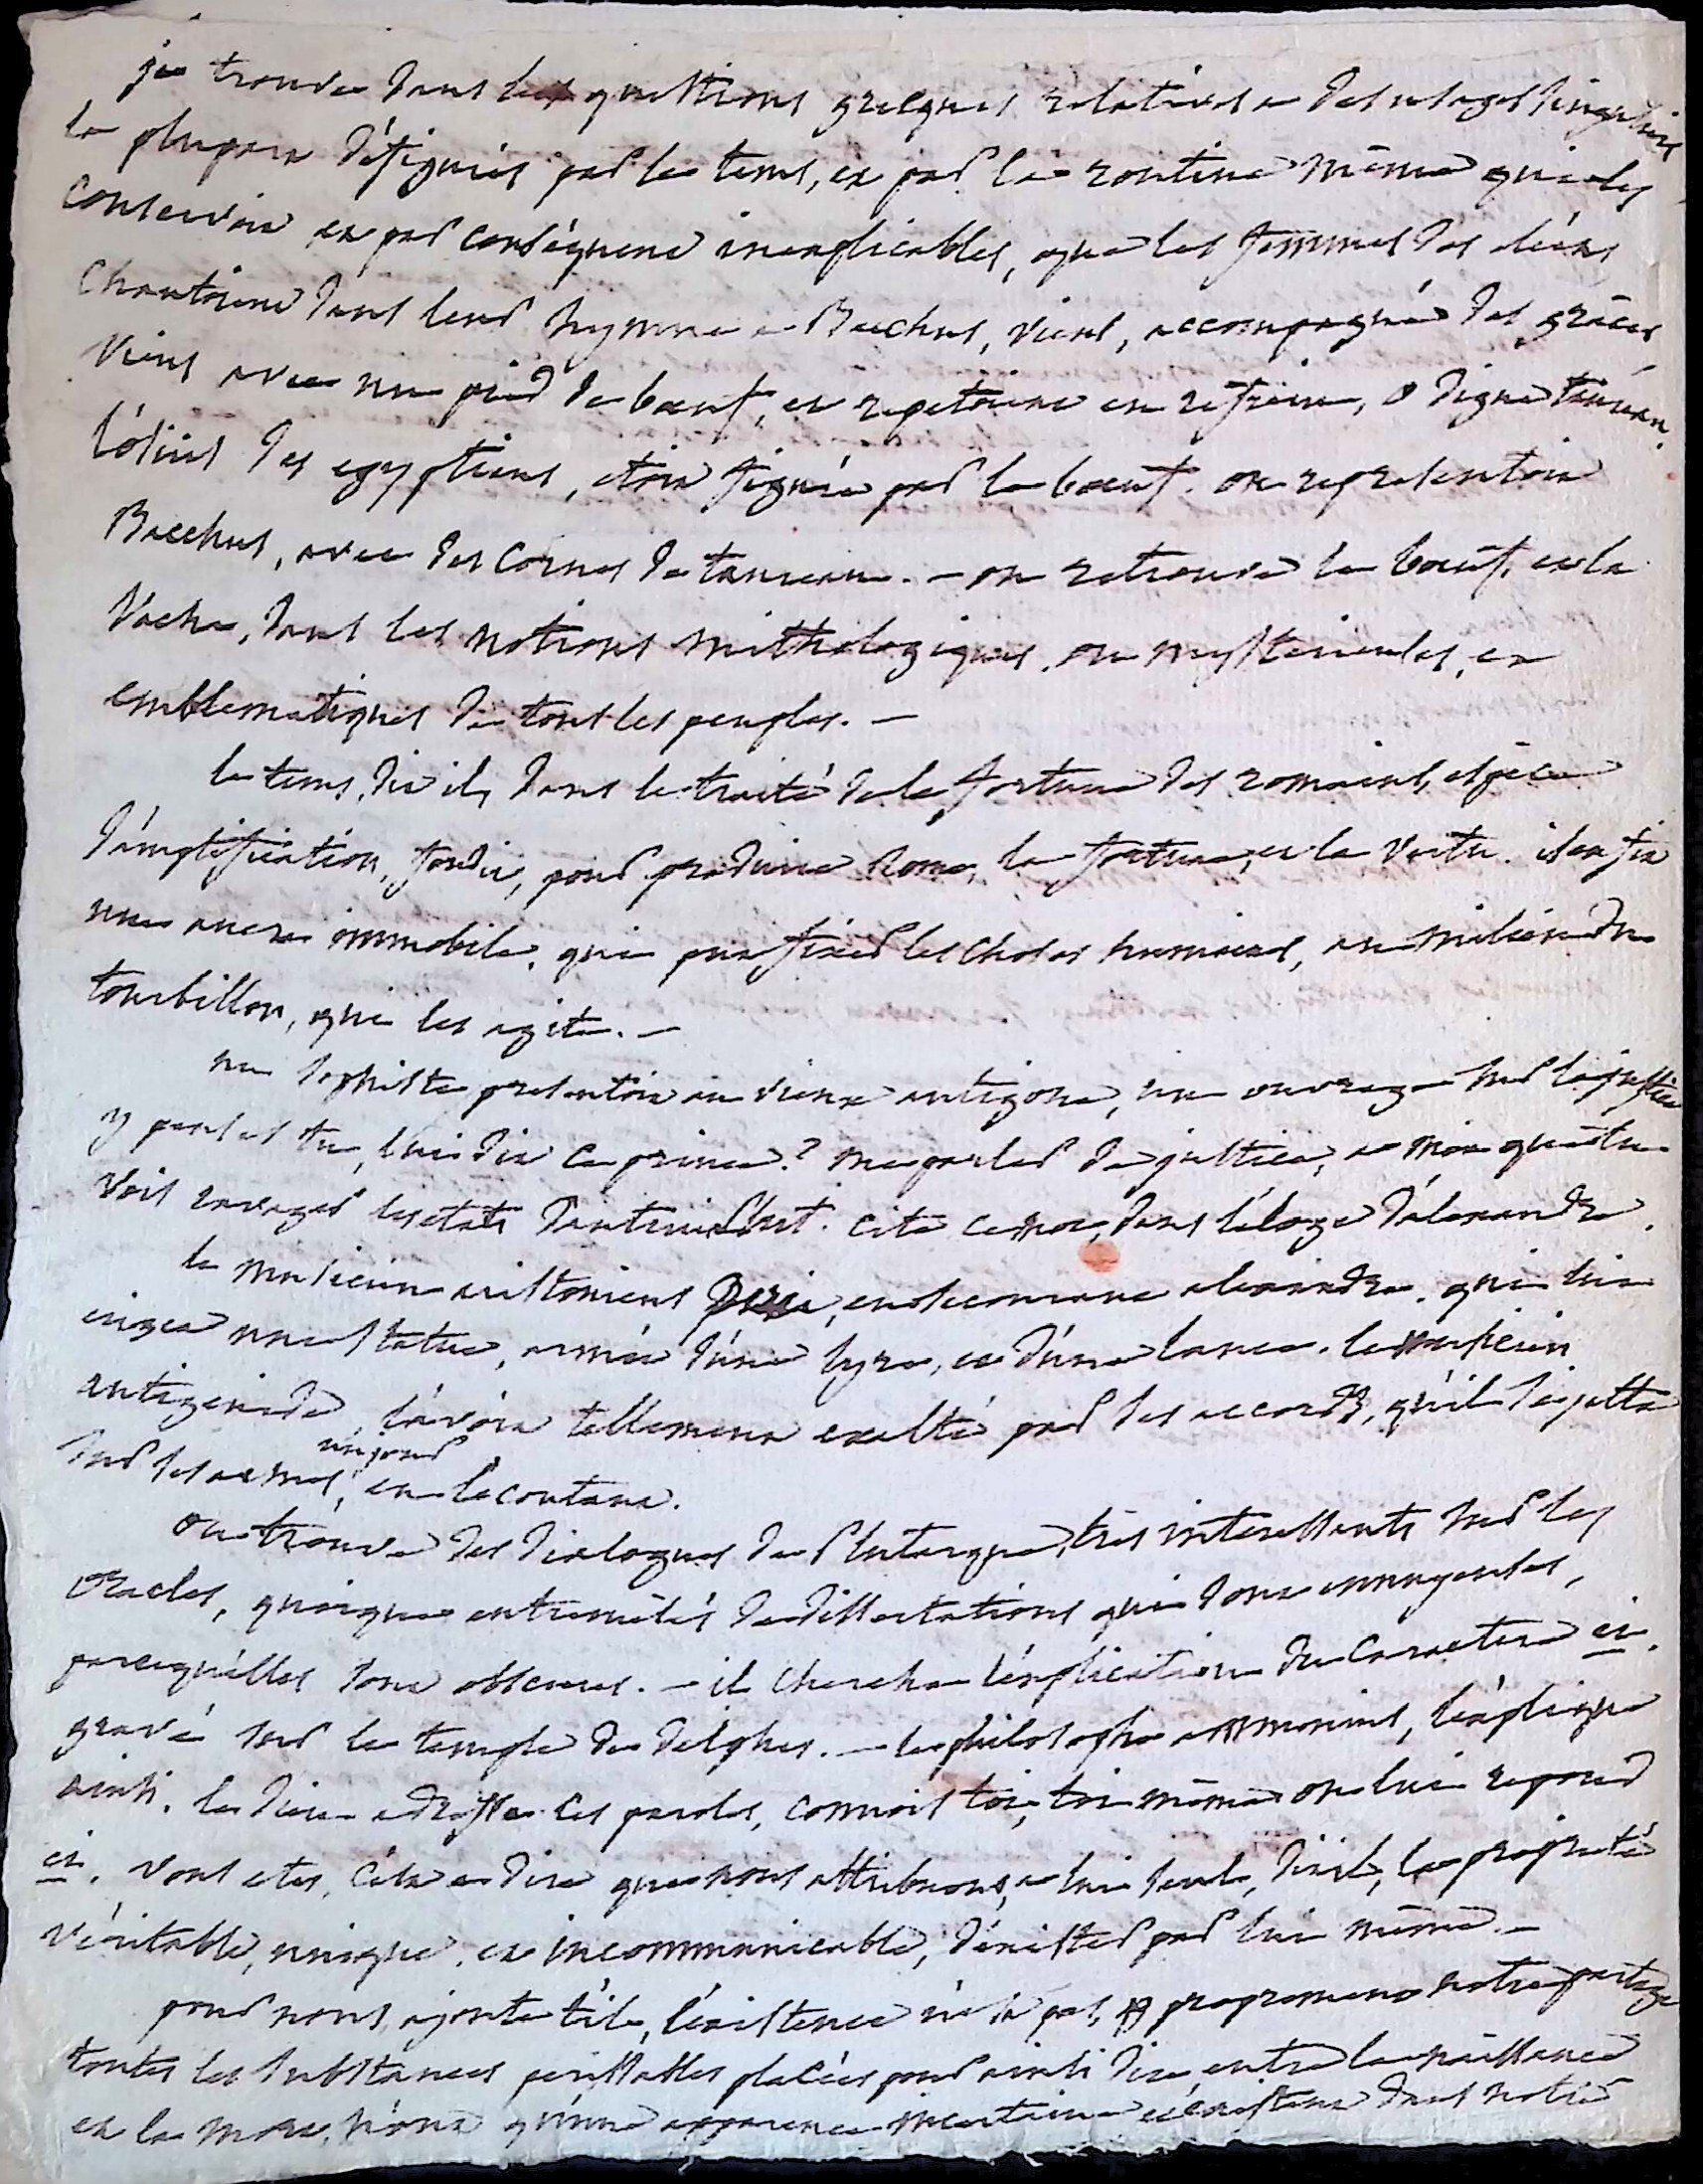 je trouve dans les questions grecques relatives a des usages singuliers
la plupara défigurés par le tems, et par la routine même qui les
conservoit et par conséquent inexplicables, que les femmes des eléens
chantoient dans leur hymne a Bacchus, viens, accompagné des grâces,
viens avec un pied de boeuf, et repetoient en refrain, o digne taureau.
l'osiris des egyptiens, etoit figuré par le boeuf. on representoit
Bacchus, avec des cornes de taureau. - on retrouve le boeuf, et la
vache, dans les notions mithologiques, ou mysterieuses, et
emblematiques de tous les peuples. -
le tems, dit il, dans le traité de la fortune des romains, espece
d'amplification, fondit, pour produire Rome, la fortune, et la vertu. il en fit
une ancre immobile, qui put fixer les choses humaines, au milieu du
tourbillon, qui les agite. -
un sophiste presentoit au vieux antigone, un ouvrage sur la justice
y penses tu, lui dit ce prince? me parler de justice, a moi que tu
vois ravager les etats d'autrui. Plut. cite ce mot, dans l'éloge d'alexandre.
le musicien aristonicus périt, en secourant alexandre, qui lui
erigea une statue, armée d'une lyre, et d'une lance. le musicien
antigenide, l'avoit tellement exalté par ses accords, qu'il se jetta
un jour
sur ses armes, en l'ecoutant.
on trouve des dialogues de Plutarque, très interessants sur les
oracles, quoique entremêlés de dissertations qui sont ennuyeuses,
parcequ'elles sont obscures. - il cherche l'explication du caractere ei.
gravé sur le temple de delphes. - le philosophe ammonius, l'explique
ainsi. le dieu adresse ces paroles, connois toi, toi même on lui repond
ei. vous etes, c'est a dire que nous attribuons, a lui seul, dit il, la propriété
véritable, unique, et incommunicable, d'exister par lui même. -
pour nous, ajoute t'il, l'existence n'est pas, proprement notre partage
toutes les substances perissables placées pour ainsi dire entre la naissance
et la mort, n'ont qu'une apparence incertaine et existent dans notre